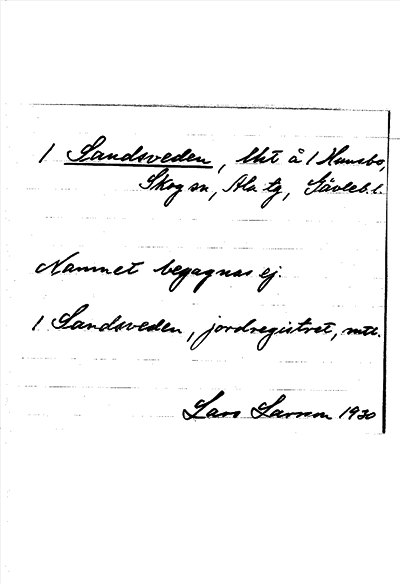 1 Sandsveden, lht å 1 Hunsbo,
Skog sn, Ala tg, Gävleb. l.
Namnet begagnas ej.
1 Sandsveden, jordregistret, mtl.
Lars Larsson 1930